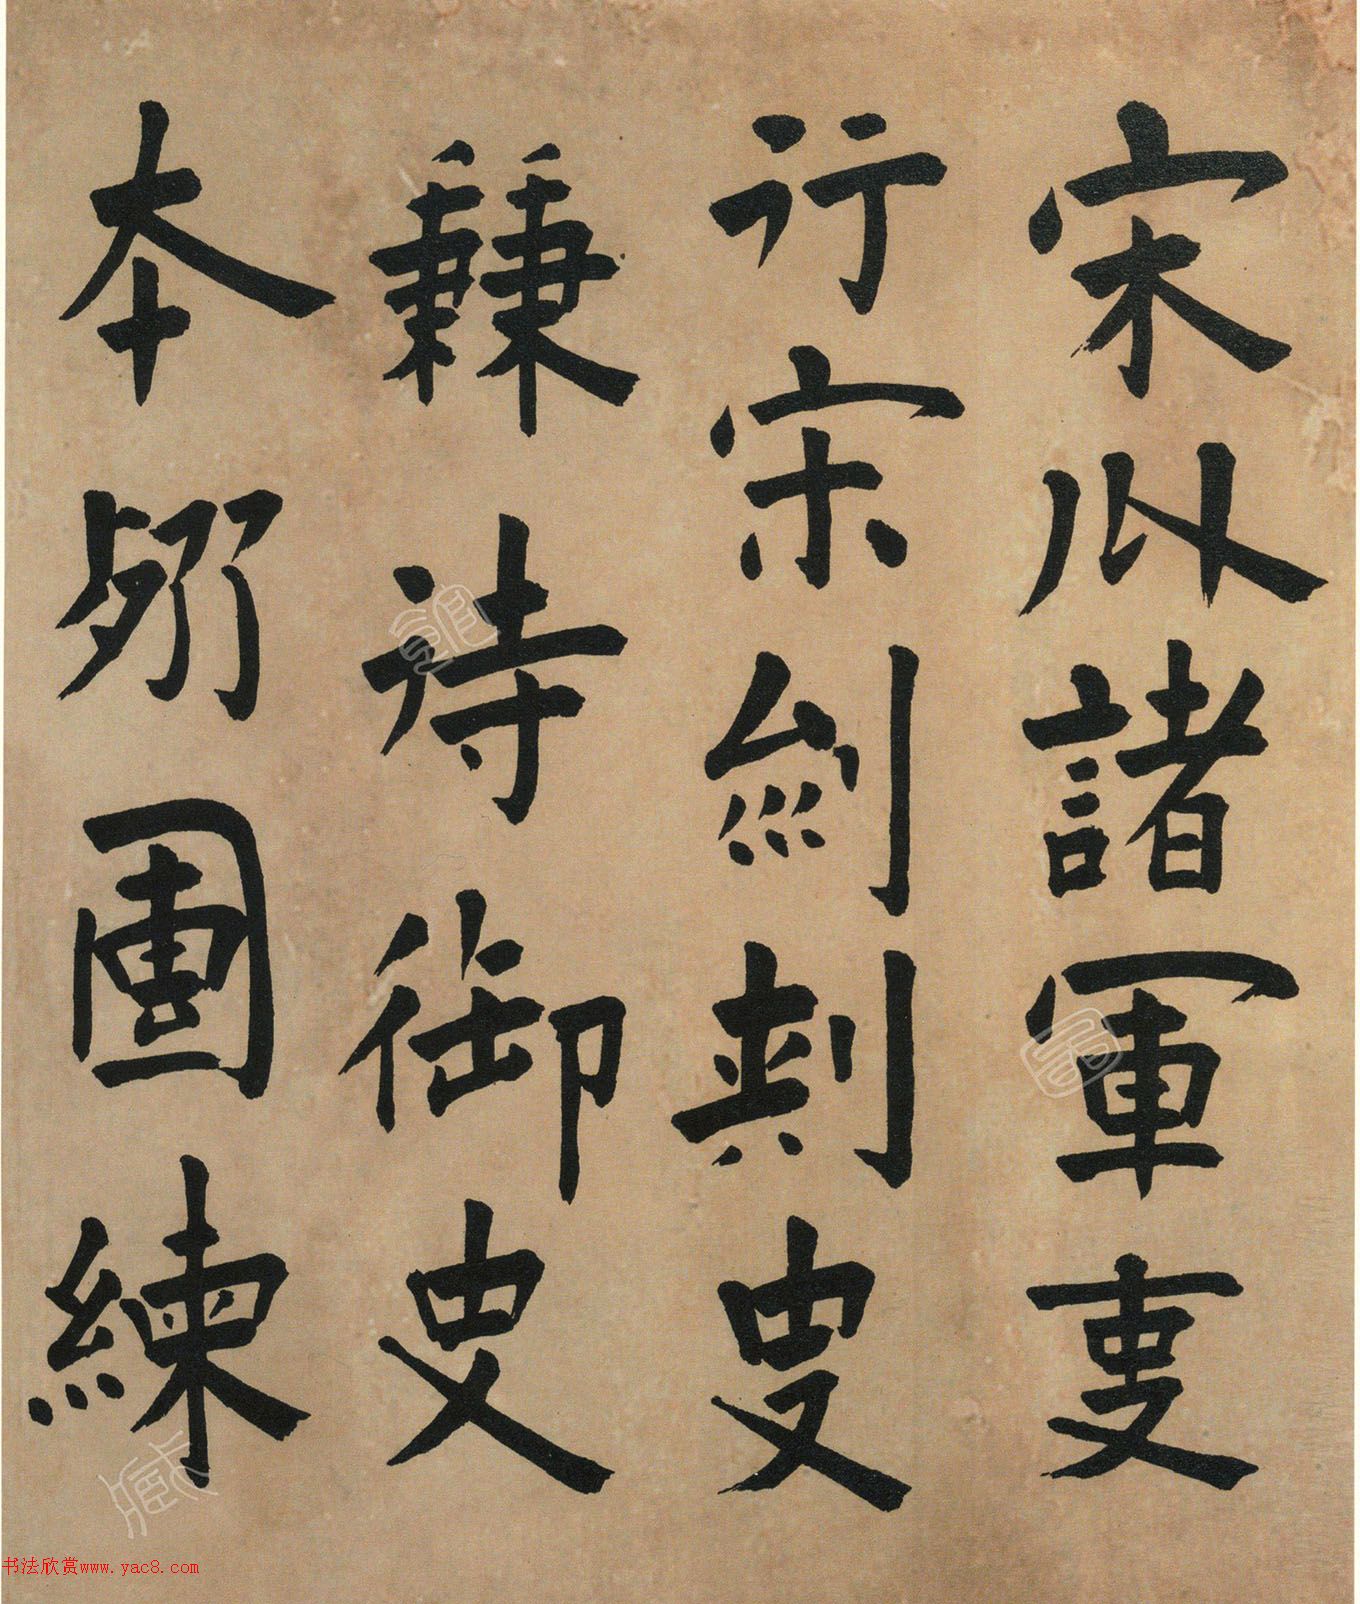 宋州諸軍事
行宋州刺史
兼侍御史
本州團練
书法欣赏www.yac8.com